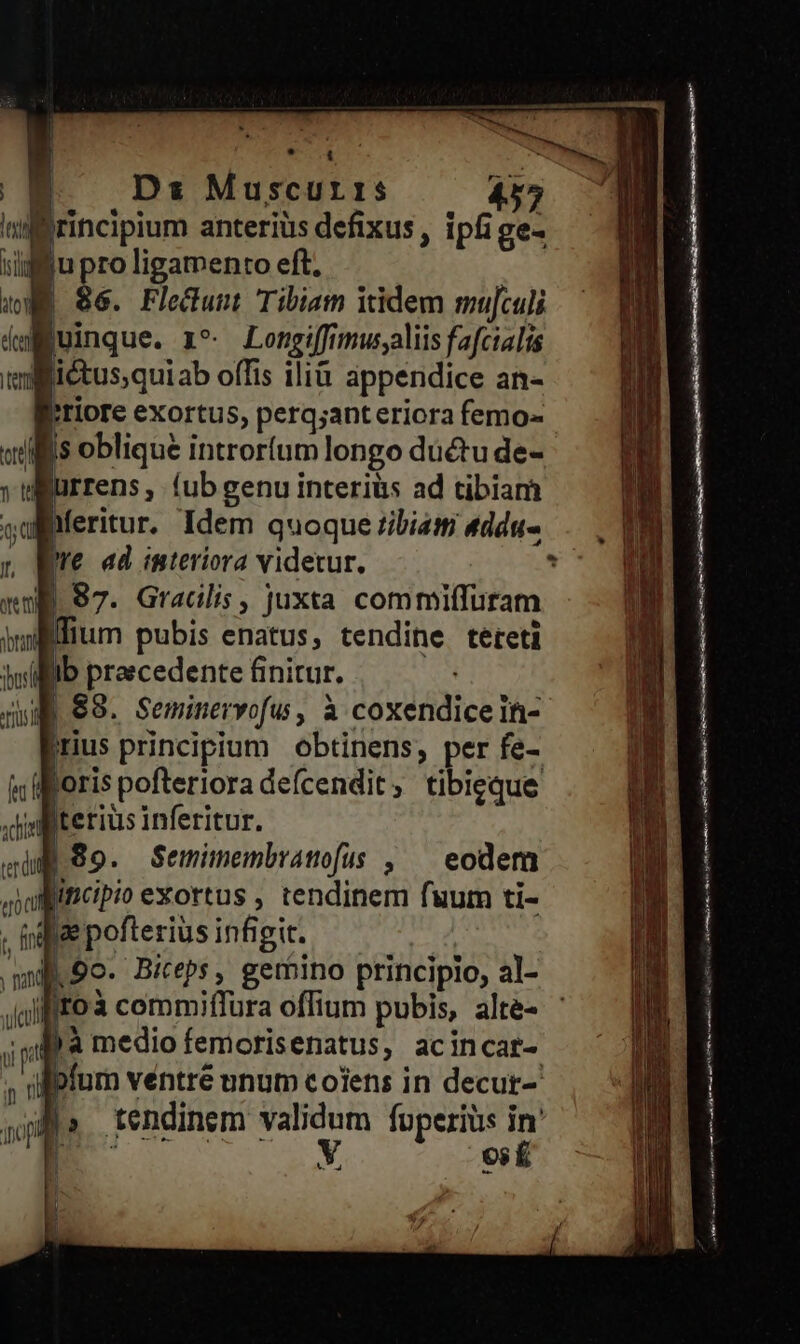 De Musculis 457
principium anteriùs defixus, ipſi ge-
u pro ligamento eſt.
86. Flectunt Tibiam itidem muſculi
quinque. 1º. Longiſſimus, aliis faſcialis
dictus, qui ab oſſis iliû appendice an-
teriore exortus, perq; anteriora femo-
ris obliquè introrſum longo ductu de-
currens, ſub genu interiùs ad tibiam
inſeritur. Idem quoque tibiam addu-
cere ad interiora videtur.
87. Gracilis, juxta commiſſuram
oſſium pubis enatus, tendine tereti
ſub præcedente finitur.
88. Seminervoſus, à coxendice in-
principium obtinens, per fe-
moris poſteriora deſcendit, tibięque
interiùs inſeritur.
89. Semimembranoſus, eodem
principio exortus, tendinem ſuum ti-
poſteriùs infigit.
90. Biceps, gemino principio, al-
tero à commiſſura oſſium pubis, alte-
à medio femoris enatus, ac in car-
ipſum ventrē unum coïens in decur-
tendinem validum ſuperiùs in
V os ſi